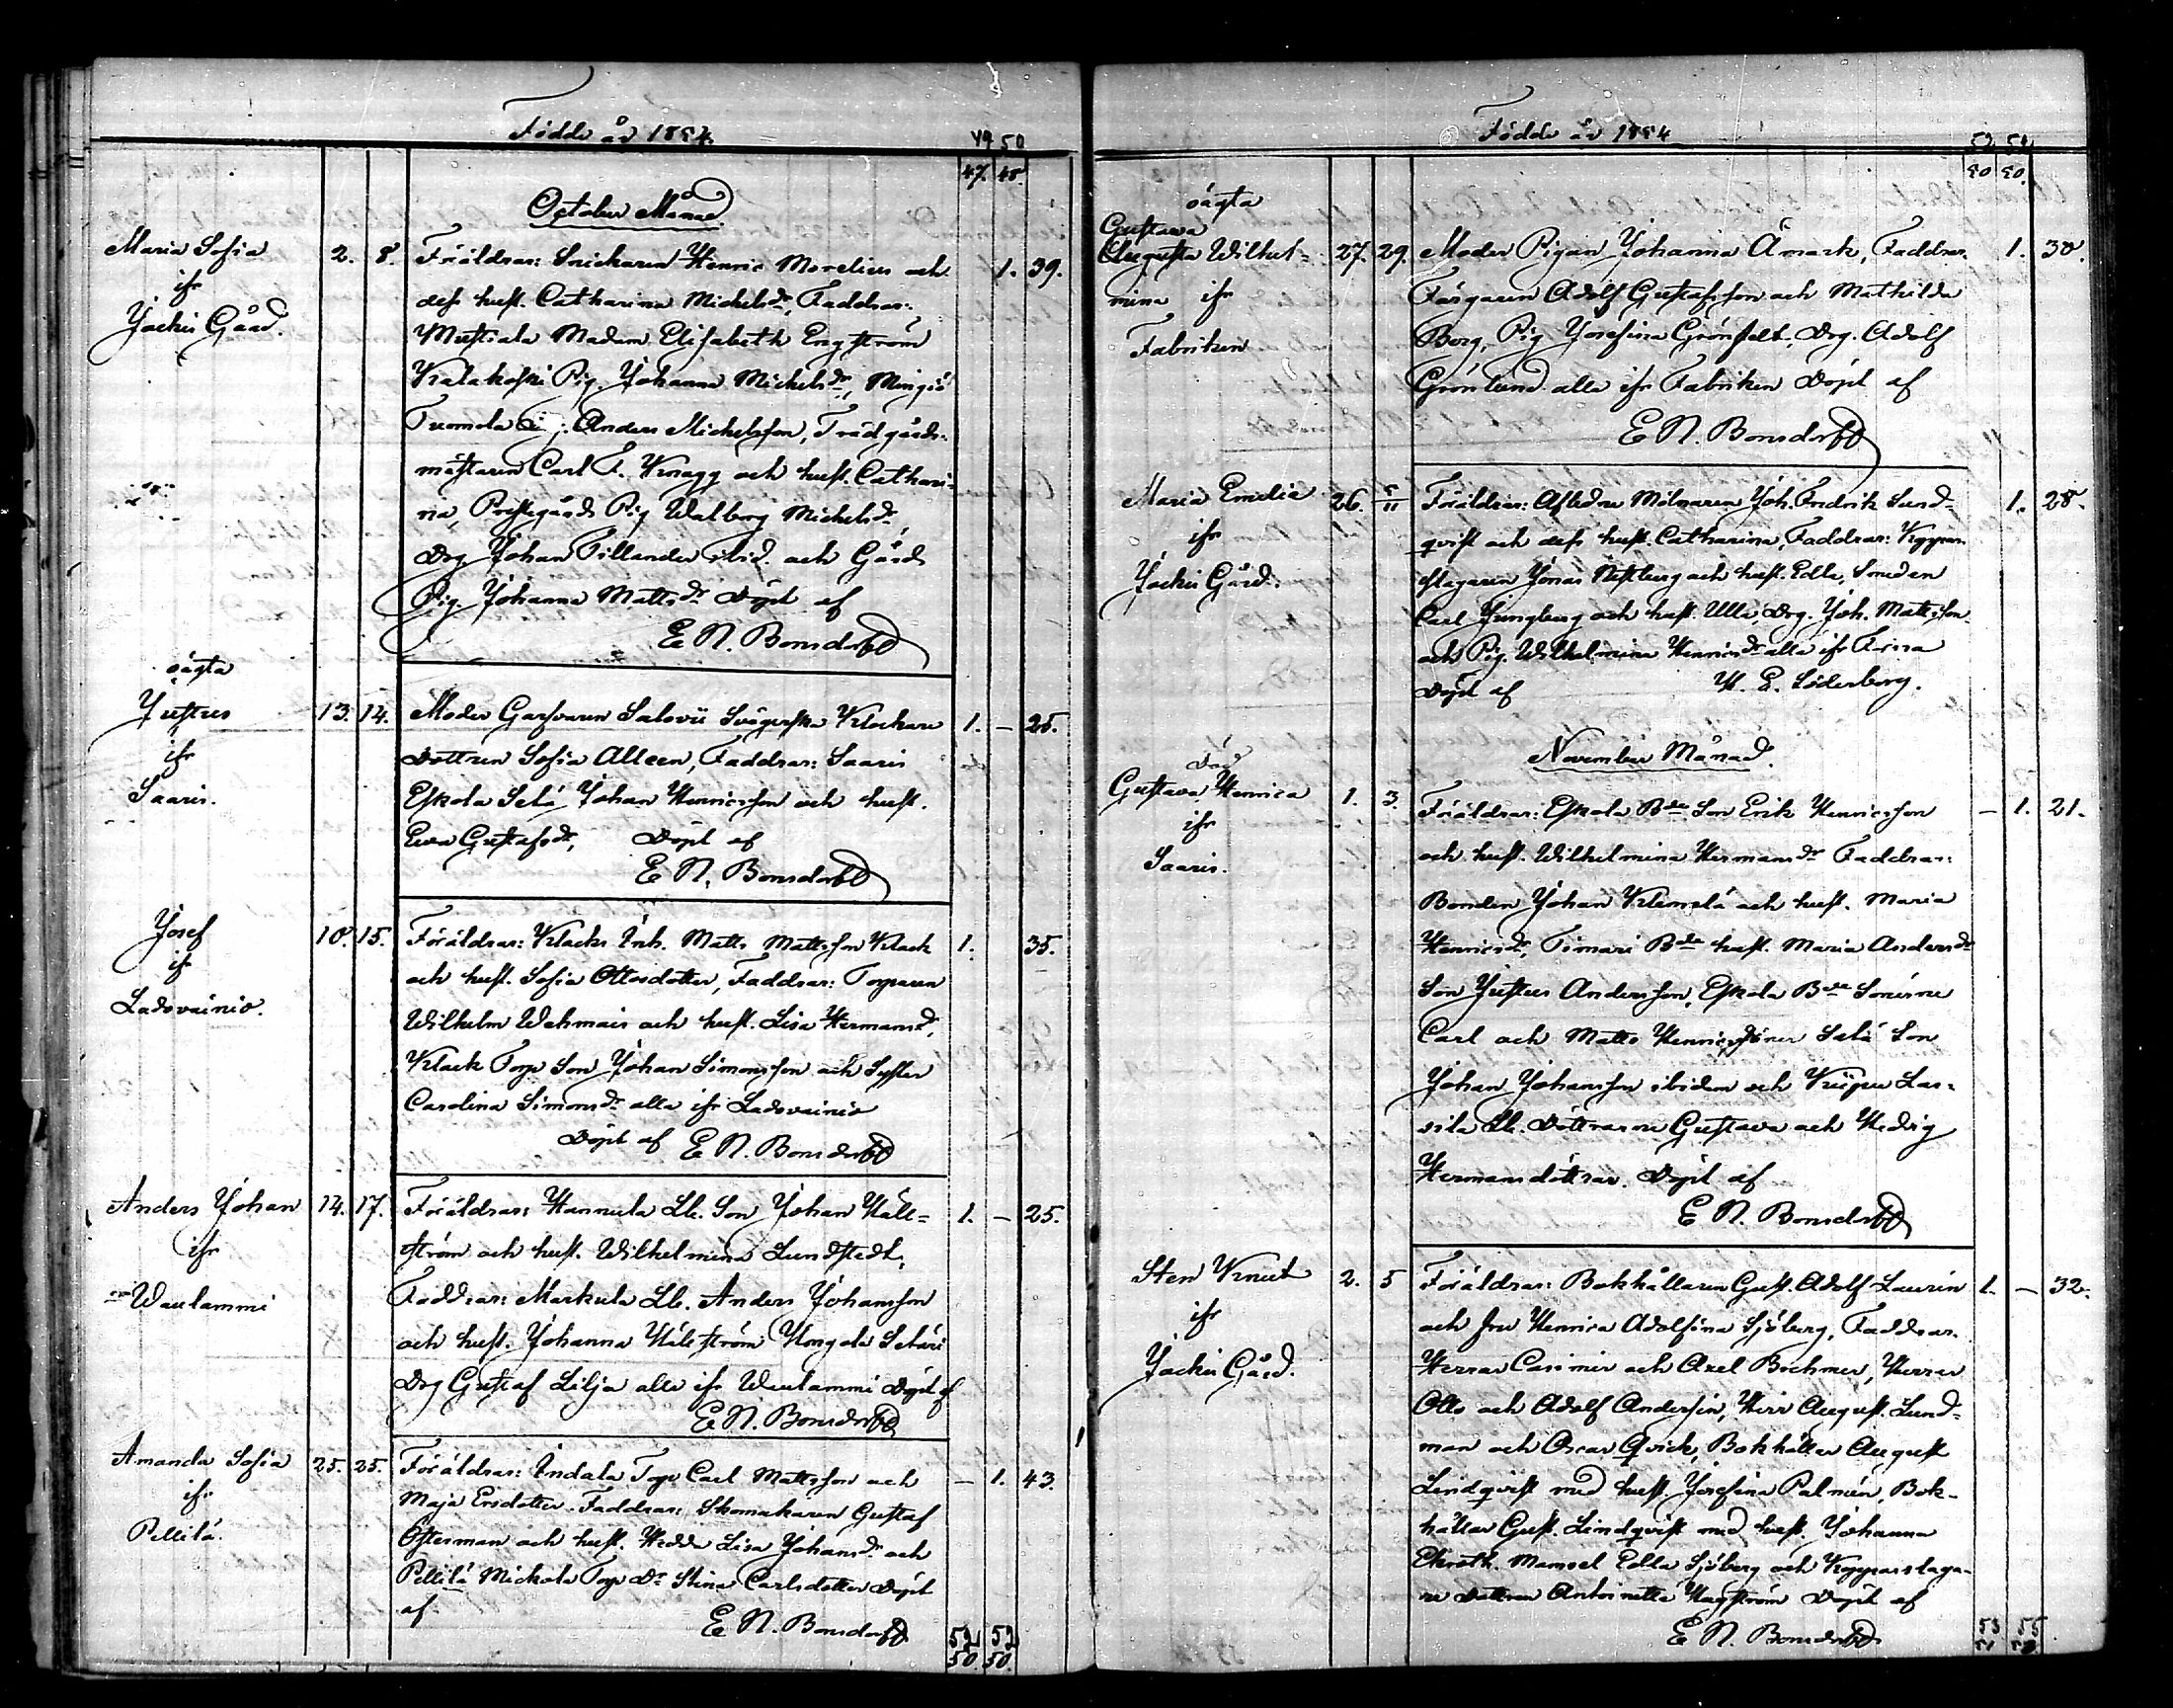 Födde år 1854.
49 50
47. 48.
October Månad
Maria Sofia 2. 8. Föräldrar: Snickaren Henric Morelius och 1. 39.
ifr dess hust. Catharina Michelsdr, Faddrar:
Jockis Gård. Mustiala Madam Elisabeth Engström
Kalakoski Pig. Johanna Michelsdr, Mingiö
Tuomola Anders Michelsson, Trädgårds-
mästaren Carl F. Knagg och hust. Cathari-
na, Prestgårds Pig Walborg Michelsdr
Drg Johan Tillander ibid. och Gårds
Pig. Johanna Mattsdr Döpt af
E N. Bonsdorff
oägta
Justus 13. 14. Moder Garfvaren Salovii Svägerska Klockare 1. — 25.
ifr Dottren Sofia Alleen, Faddrar: Saaris
Saaris. Eskola Johan Henricsson och hust.
Eva Gustafsdr, Döpt af
E N. Bonsdorff
Josef 10. 15. Föräldrar: Klacks Inh. Matts Mattsson Klack 1. 35.
if och hust. Sofia Ottosdotter, Faddrar: Torparen
Ladovainio. Wilhelm Wehmais och hust. Lisa Hermansdr,
Klack Torp Son Johan Simonsson och Syster
Carolina Simonsdr alla ifr Ladovainio
Döpt af E N. Bonsdorff
Anders Johan 14. 17. Föräldrar: Hannula Lb. Son Johan Häll- 1. — 25.
ifr ström och hust. Wilhelmina Lundstedt,
Waulammi Faddrar: Markula Lb. Anders Johansson
och hust. Johanna Hällström Hongola
Drg Gustaf Lilja alla ifr Waulammi Döpt af
E. N. Bonsdorff
Amanda Sofia 25. 25. Föräldrar: Indala Torp Carl Mattsson och — 1. 43.
ifr Maja Ersdotter. Faddrar: Skomakaren Gustaf
Pellilä. Österman och hust. Hedda Lisa Johansdr och
Pellilä Mickola Torp Dr Stina Carlsdotter Döpt
af E N. Bonsdorff
52 52
50. 50.
Födde år 1854
50 50.
oägta
Gustava
Augusta Wilhel- 27. 29. Moder Pigan Johanna Åmark, Faddrar. 1. 30.
mina ifr Färgaren Adolf Gustafsson och Mathilda
Fabriken Berg, Pig Josefina Grönfelt, Drg. Adolf
Grönlund alla ifr Fabriken Döpt af
E N. Bonsdorff
Maria Emelia 26. 5/11 Föräldrar: Afledne Mölnaren Joh. Fredrik Sund- 1. 28.
ifr qvist och dess hust. Catharina, Faddrar: Koppar-
Jockis Gård. slagaren Jonas och hust. Edla, Smeden
Carl Ljungberg och hust. Ulla, Drg. Joh. Mattsson
och Pig. Wilhelmina Henricsdr alla ifr
Döpt af E. Söderborg.
November Månad.
Död
Gustava Henrica 1. 3. Föräldrar: Eskola Bde Son Erik Henricsson — 1. 21.
ifr och hust. Wilhelmina Hermansdr Faddrar:
Saaris. Bonden Johan Klemelä och hust. Maria
Henricsdr, Timari Bde hust. Maria Andersdr
Son Justus Andersson, Eskola Bde Sönerne
Carl och Matts Henricssöner Son
Johan Johansson ibidem och Las-
sila Lb. Döttrarne Gustava och Hedvig
Hermansdöttrar. Döpt af
E N. Bonsdorff
Sten Knut 2. 5 Föräldrar: Bokhållaren Gust. Adolf Laurin 1. — 32.
ifr och fru Henrica Adolfina Sjöberg, Faddrar.
Jockis Gård. Herrar Casimir och Axel Böehmer, Herrar
Otto och Adolf Andersin, Herr August Lund-
man och Oscar Qvick, Bokhållar August
Lindqvist med hust. Josefina Palmén, Bok-
hållar Gust. Lindqvist med hust. Johanna
Ekroth. Mamsel Edla Sjöberg och Kopparslaga-
re dottren Antoinetta Hagström Döpt af
E N. Bonsdorff
53 55